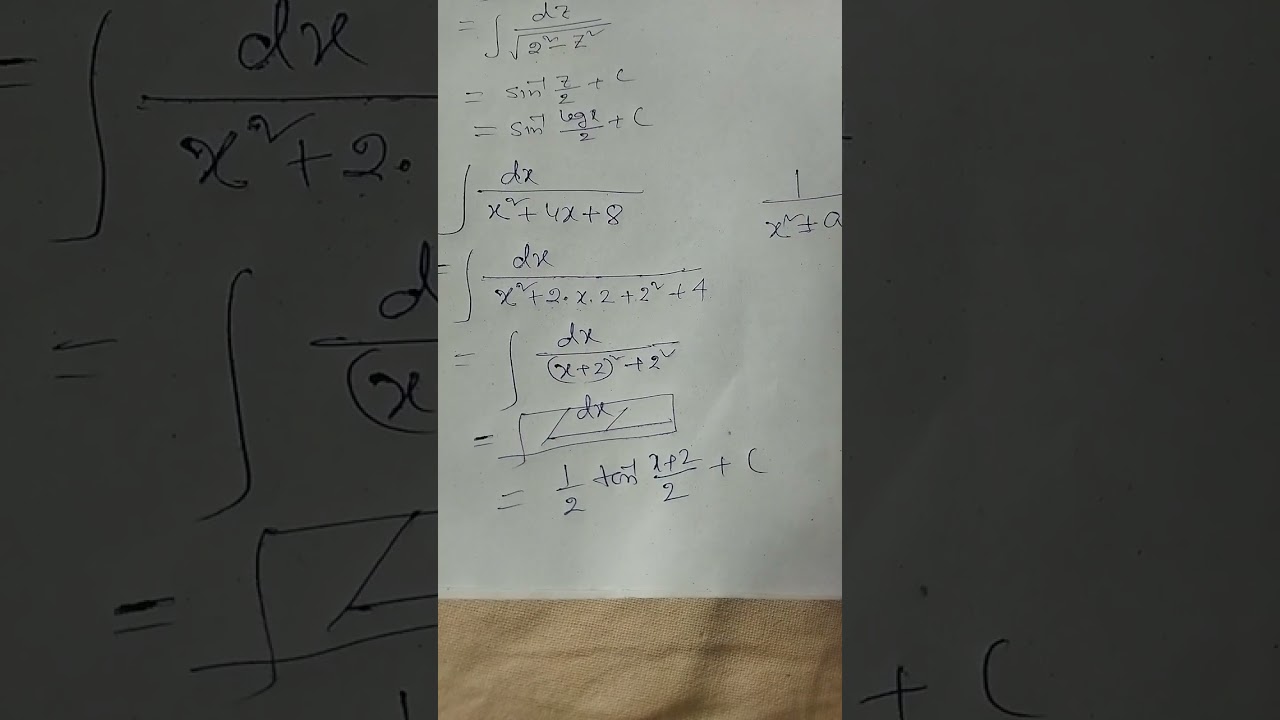 = ∫ dz / √(2² - z²)
= sin⁻¹ z/2 + C
= sin⁻¹ logx/2 + C
∫ dx / x² + 4x + 8
1 / x² + a
= ∫ dx / x² + 2·x·2 + 2² + 4
= ∫ dx / (x+2)² + 2²
= dx
= 1/2 tan⁻¹ x+2/2 + C